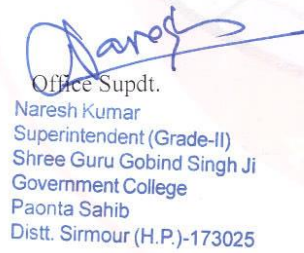 Naresh
Office Supdt.
Naresh Kumar
Superintendent (Grade-II)
Shree Guru Gobind Singh Ji
Government College
Paonta Sahib
Distt. Sirmour (H.P.)-173025